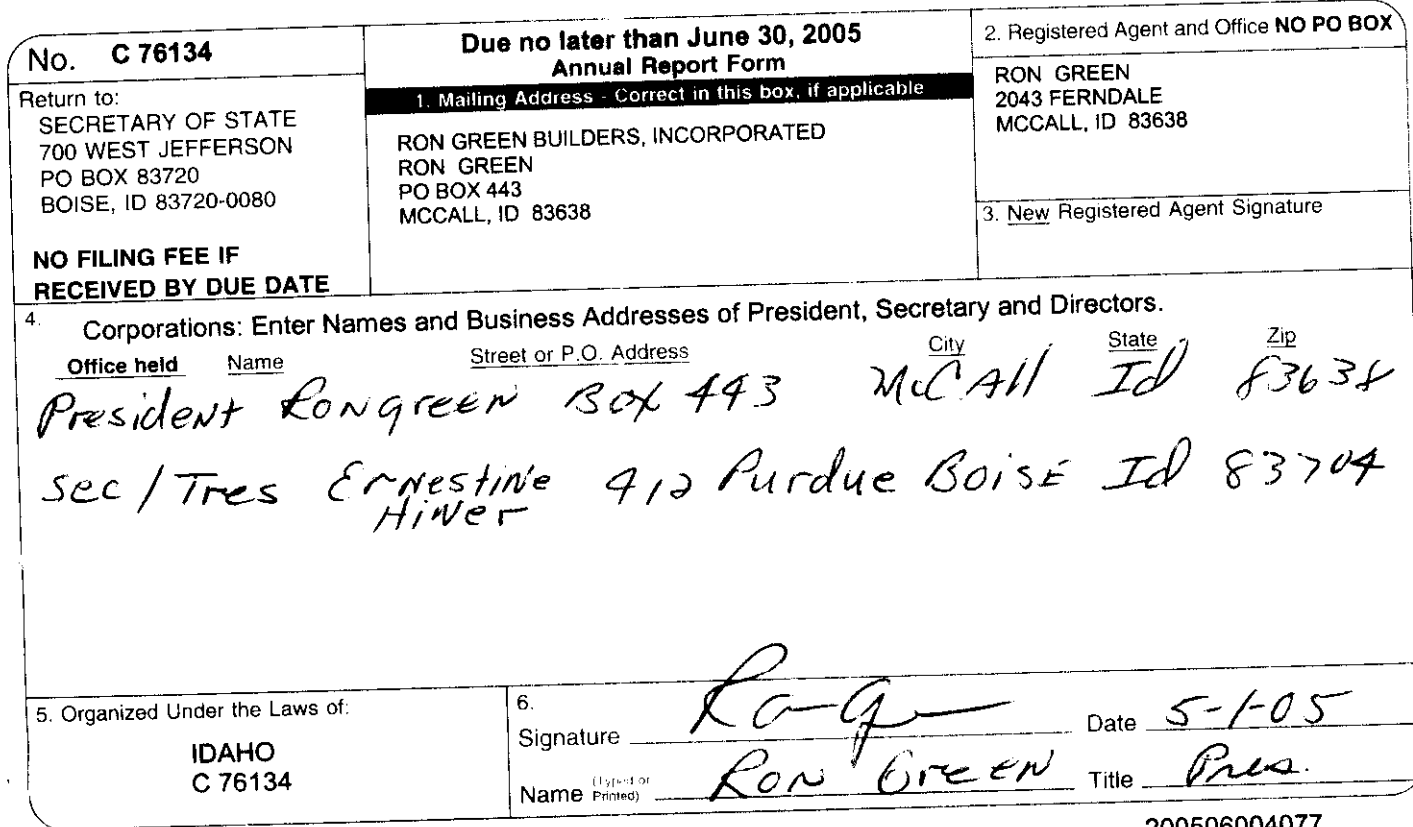 No. C 76134
Return to:
SECRETARY OF STATE
700 WEST JEFFERSON
PO BOX 83720
BOISE, ID 83720-0080
NO FILING FEE IF
RECEIVED BY DUE DATE
Due no later than June 30, 2005
Annual Report Form
1. Mailing Address - Correct in this box, if applicable
RON GREEN BUILDERS, INCORPORATED
RON GREEN
PO BOX 443
MCCALL, ID 83638
2. Registered Agent and Office NO PO BOX
RON GREEN
2043 FERNDALE
MCCALL, ID 83638
3. New Registered Agent Signature
4. Corporations: Enter Names and Business Addresses of President, Secretary and Directors.
Office held Name Street or P.O. Address City State Zip
President Ron green Box 443 McCAll Id 83638
Sec / Tres Ernestine 412 Purdue Boise Id 83704
Hiner
5. Organized Under the Laws of:
IDAHO
C 76134
6.
Signature Date 5-1-05
Name (Typed or Printed) Ron Green Title Pres.
200506004077